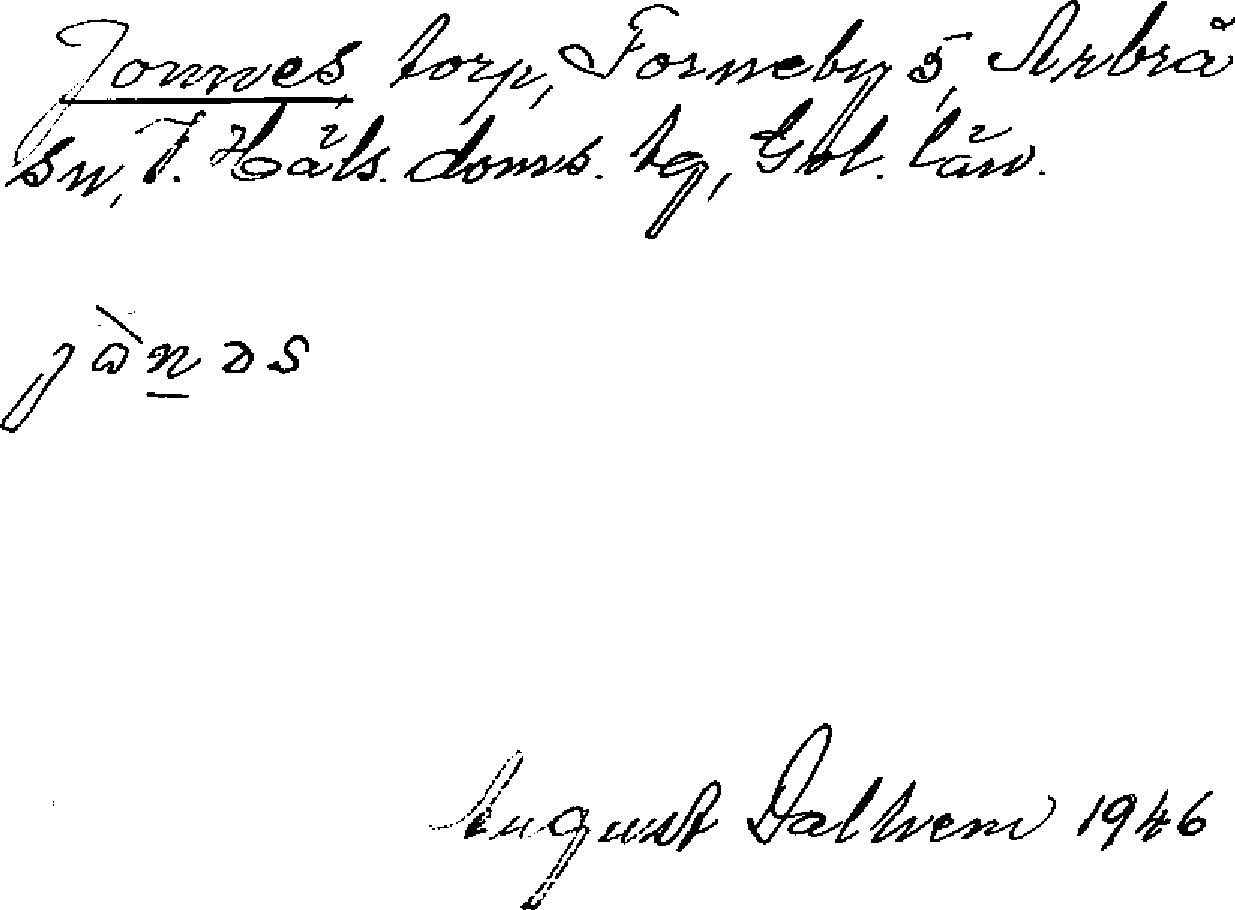 Jonnes torp, Forneby 5, Arbrå
sn, V. Häls. doms. tg, Gbl. län.
jò̀n̲ɔs
August Dalhem 1946